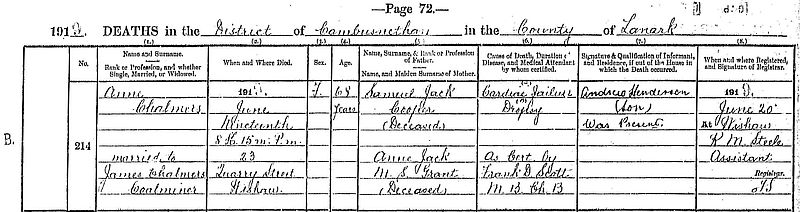 —Page 72.—
191 DEATHS in the District of Cambusnethan in the County of Lanark
(1.) (2.) (3.) (4.) (5.) (6.) (7.) (8.)
No. Name and Surname. Rank or Profession, and whether Single, Married, or Widowed.
When and Where Died.
Sex.
Age.
Name, Surname, & Rank or Profession of Father. Name, and Maiden Surname of Mother.
Cause of Death, Duration of Disease, and Medical Attendant by whom certified.
Signature & Qualification of Informant, and Residence, if out of the House in which the Death occurred.
When and where Registered, and Signature of Registrar.
B.
214
Anne
Chalmers
married to
James Chalmers
Coalminer
191
June
Nineteenth
8 h. 15 m. P.m.
23
Quarry Street
Wishaw
F.
68
years
Samuel Jack
Cooper
(Deceased)
Anne Jack
M.S. Grant
(Deceased)
Cardiac Failure
Dropsy
As Cert. by
Frank D. Scott
M.B. Ch.B
Andrew Henderson
(Son)
Was Present.
191
June 20
At Wishaw
K M Steele
Assistant
Registrar.